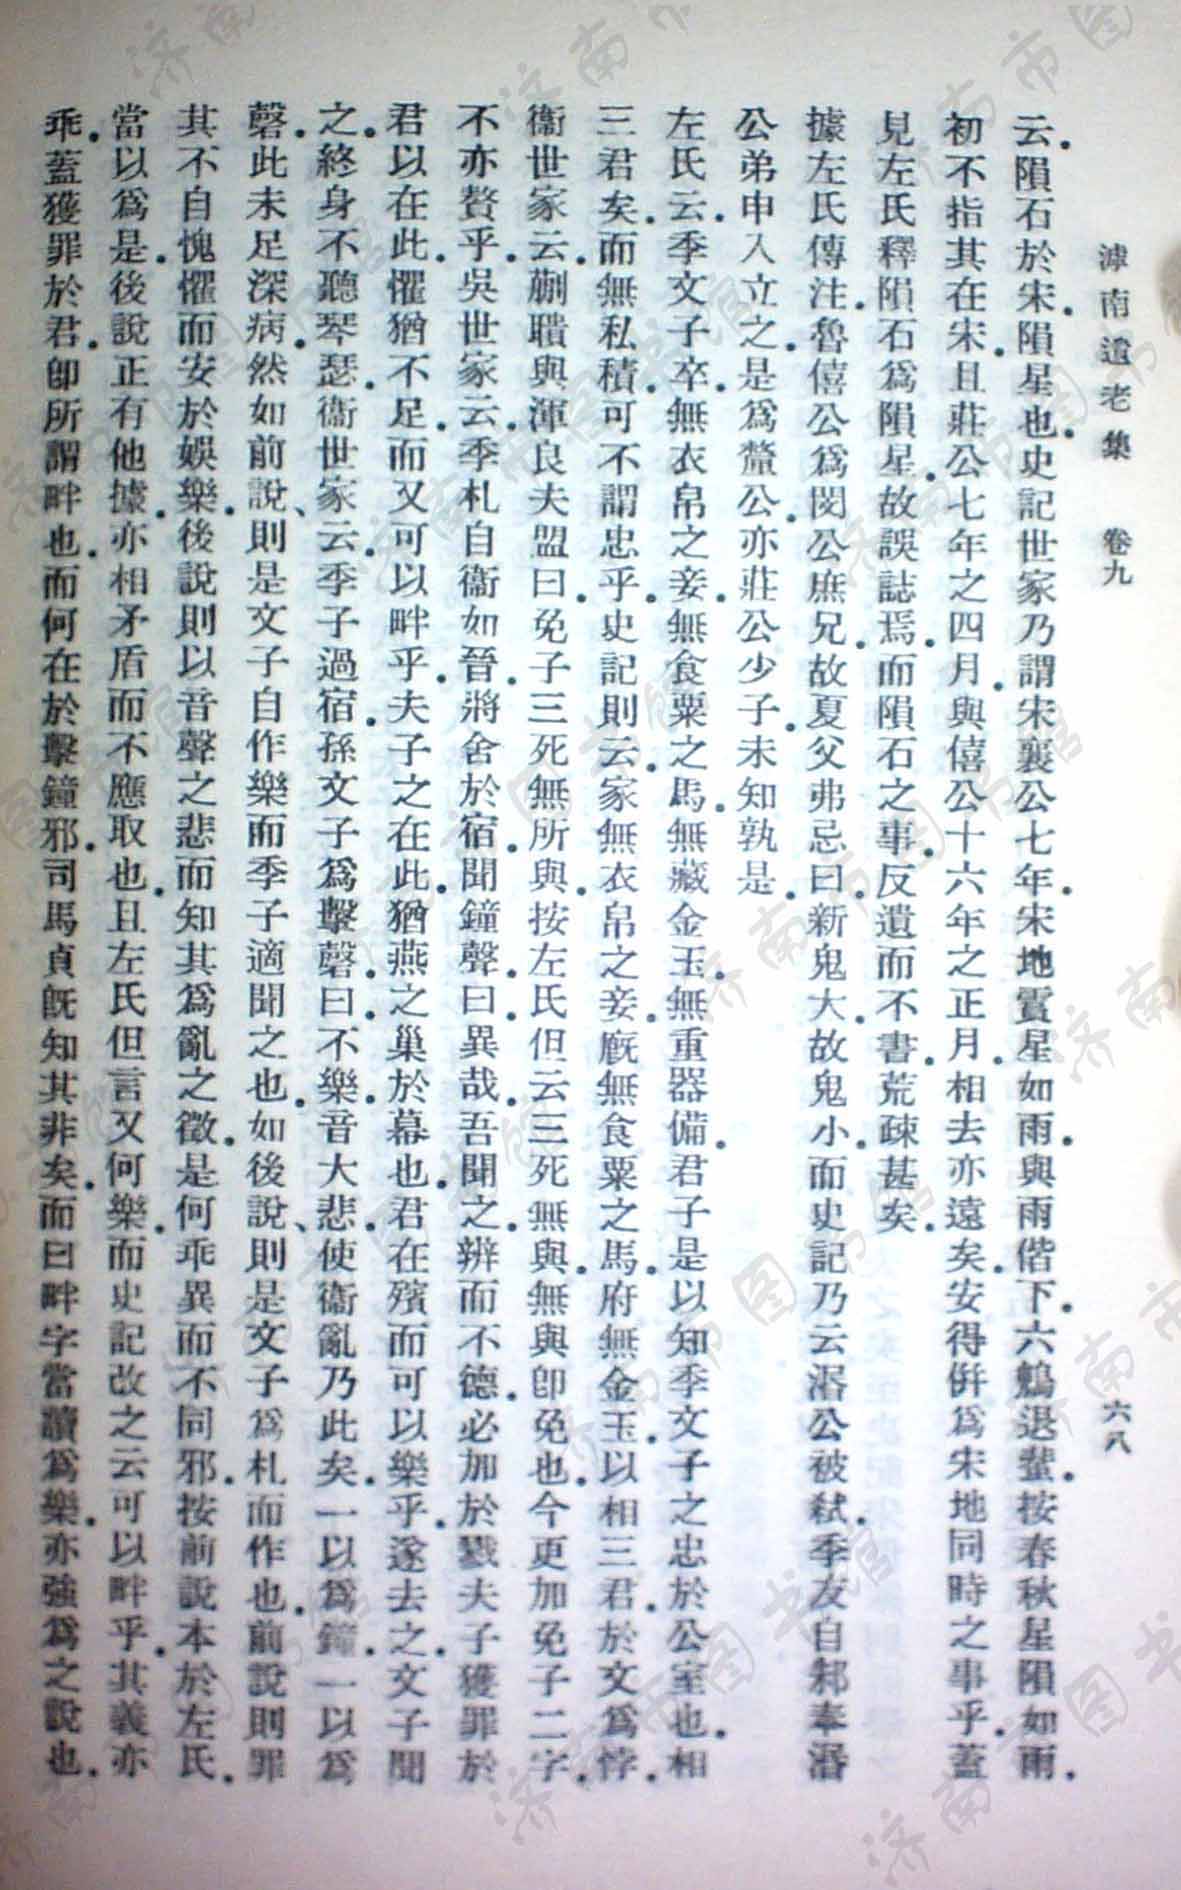 滹南遺老集　卷九　六八
云。隕石於宋。隕星也。史記世家乃謂宋襄公七年。宋地霣星如雨。與雨偕下。六鶂退蜚。按春秋星隕如雨。
初不指其在宋。且莊公七年之四月。與僖公十六年之正月。相去亦遠矣。安得併爲宋地同時之事乎。蓋
見左氏釋隕石爲隕星。故誤誌焉。而隕石之事。反遺而不書。荒疎甚矣。
據左氏傳注。魯僖公爲閔公庶兄。故夏父弗忌曰。新鬼大。故鬼小。而史記乃云湣公被弑。季友自邾奉湣
公弟申入立之。是爲釐公。亦莊公少子。未知孰是。
左氏云。季文子卒。無衣帛之妾。無食粟之馬。無藏金玉。無重器備。君子是以知季文子之忠於公室也。相
三君矣。而無私積。可不謂忠乎。史記則云。家無衣帛之妾。廐無食粟之馬。府無金玉。以相三君。於文爲悖。
衞世家云。蒯聵與渾良夫盟曰。免子三死無所與。按左氏但云三死無與。無與卽免也。今更加免子二字。
不亦贅乎。吳世家云。季札自衞如晉。將舍於宿。聞鐘聲。曰。異哉。吾聞之。辨而不德。必加於戮。夫子獲罪於
君以在此。懼猶不足。而又可以畔乎。夫子之在此。猶燕之巢於幕也。君在殯而可以樂乎。遂去之。文子聞
之。終身不聽琴瑟。衞世家云。季子過宿。孫文子爲擊磬。曰。不樂。音大悲。使衞亂乃此矣。一以爲鐘。一以爲
磬。此未足深病。然如前說、則是文子自作樂而季子適聞之也。如後說、則是文子爲札而作也。前說則罪
其不自愧懼而安於娛樂。後說則以音聲之悲而知其爲亂之徵。是何乖異而不同邪。按前說本於左氏。
當以爲是。後說正有他據。亦相矛盾而不應取也。且左氏但言又何樂。而史記改之云可以畔乎。其義亦
乖。蓋獲罪於君。卽所謂畔也。而何在於擊鐘邪。司馬貞旣知其非矣。而曰畔字當讀爲樂。亦強爲之說也。